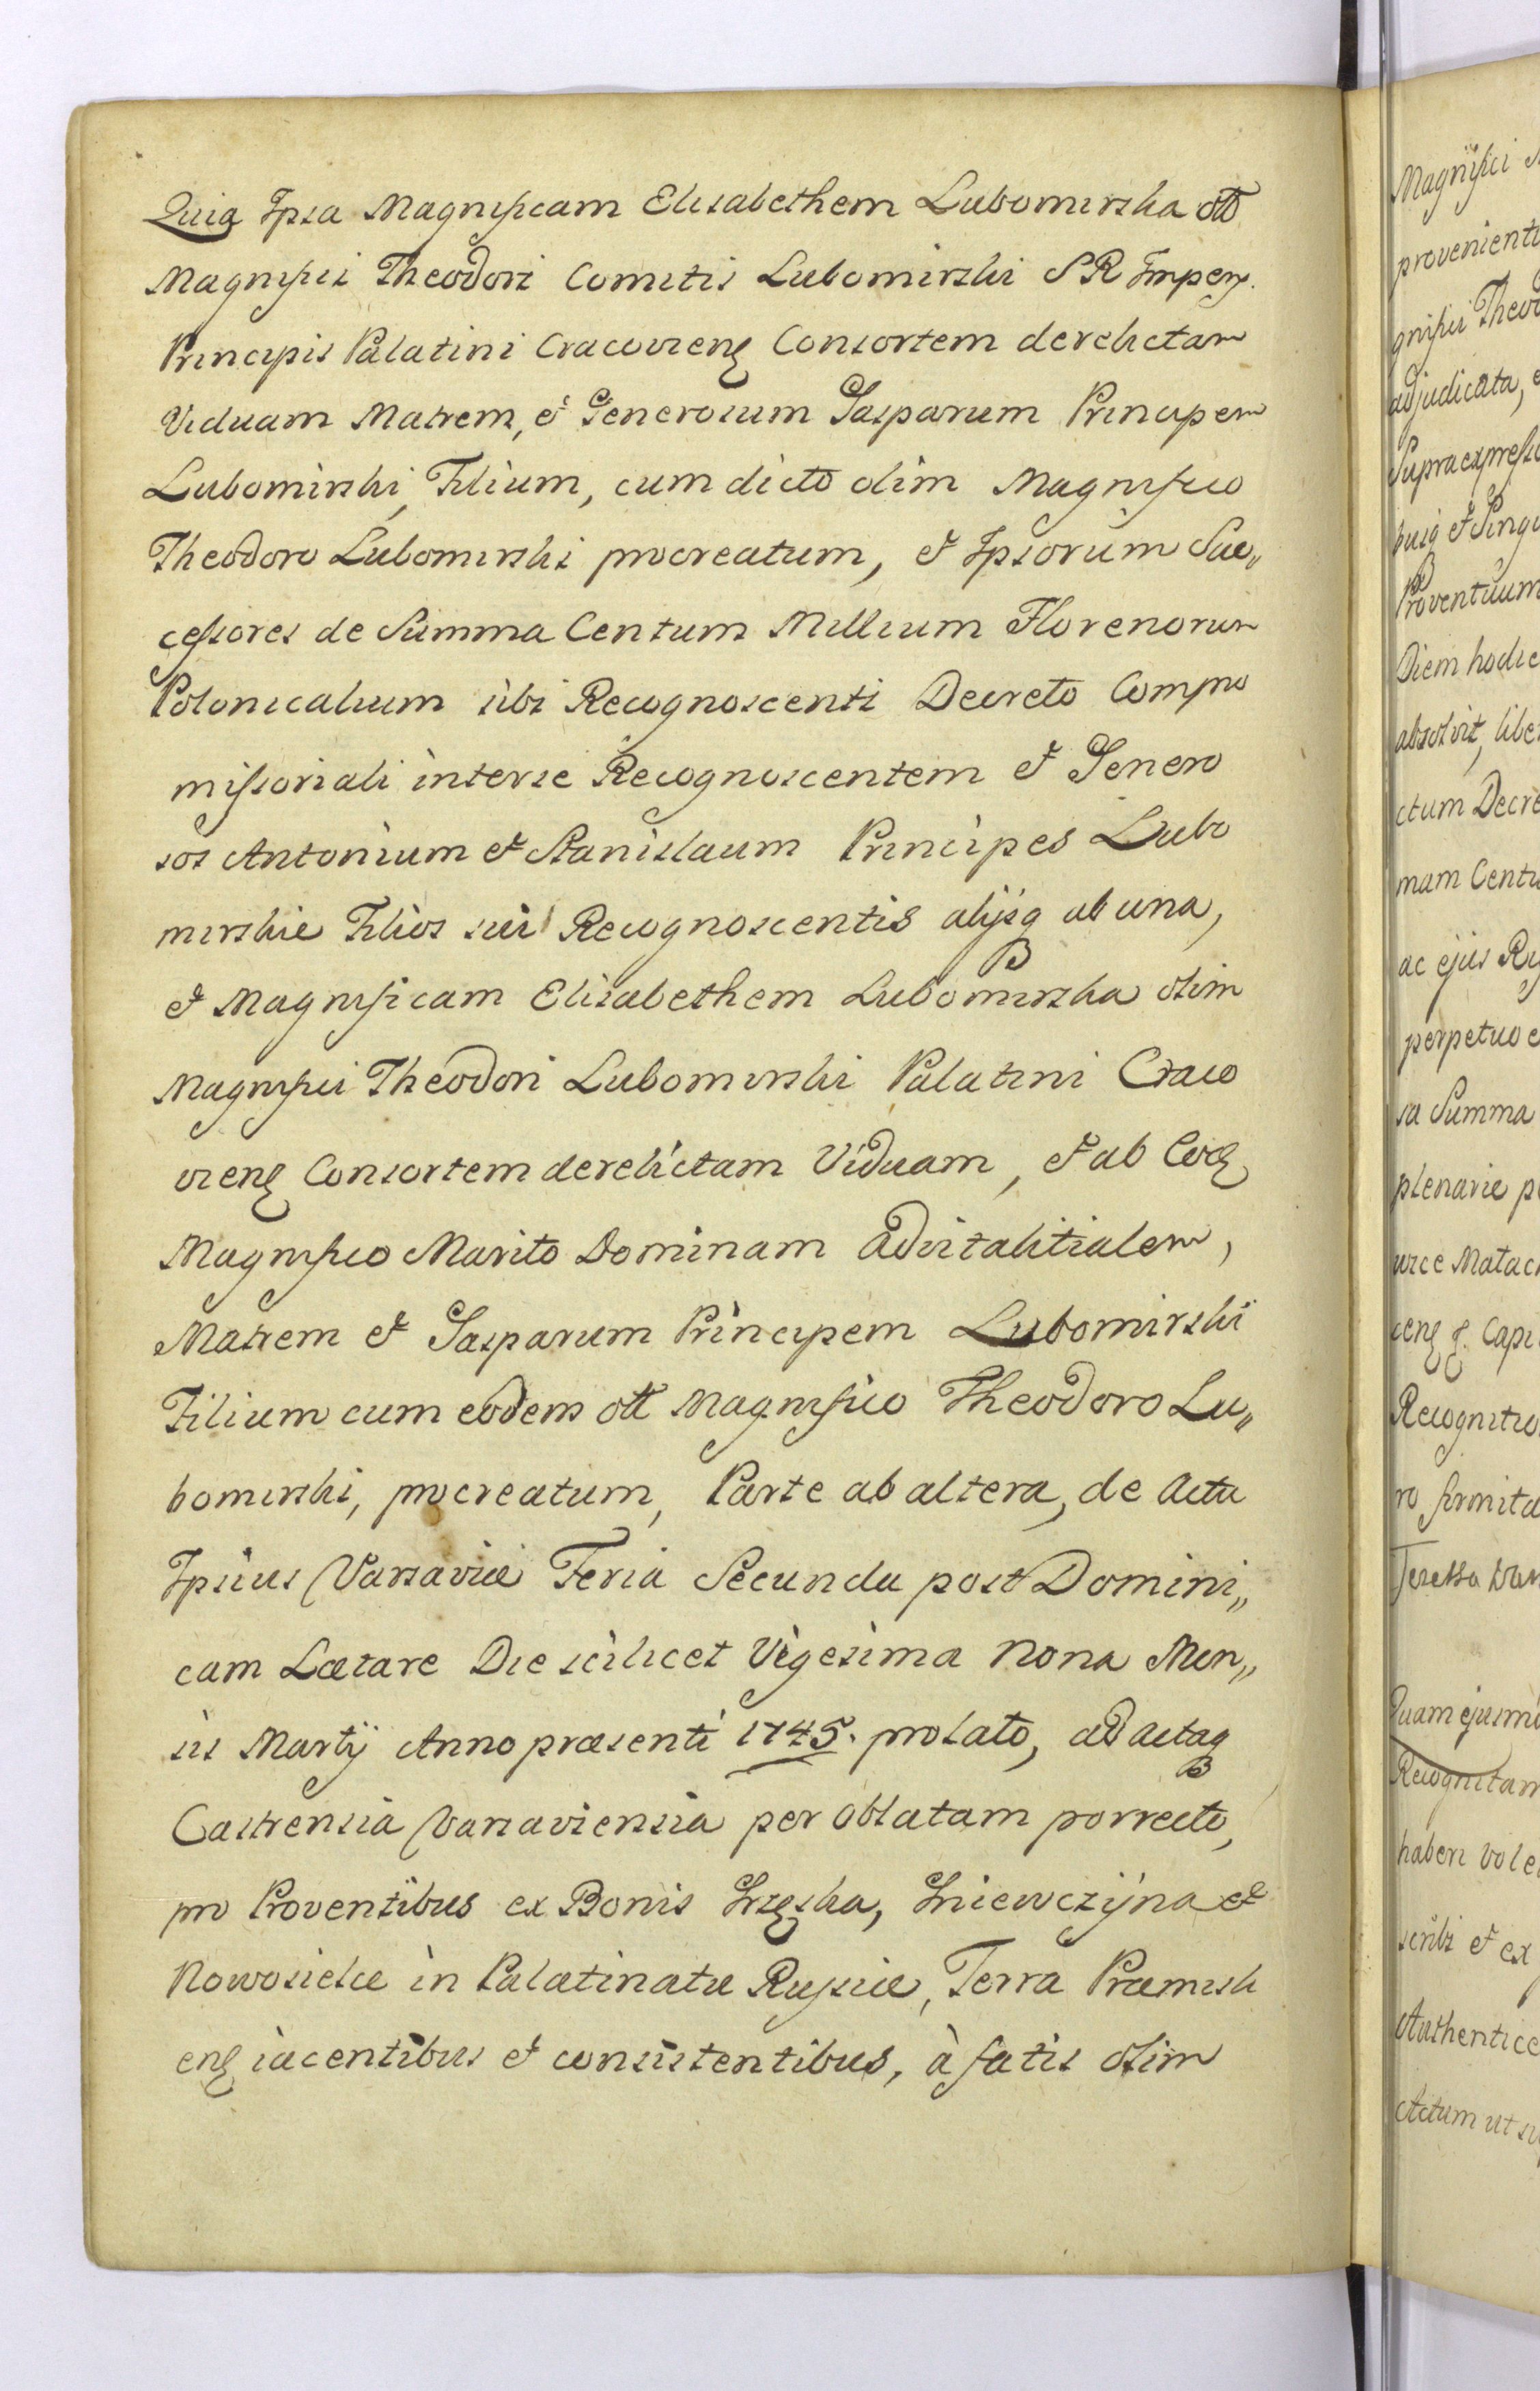 Quia Ipsa Magnificam Elisabethem Lubomirska olt
Magnifici Theodori Comitis Lubomirski S R Impery.
Principis Palatini Cracovien Consortem derelictam
Viduam Matrem, et Generosum Gasparum Principem
Lubomirski, Filium, cum dicto olim Magnifico
Theodoro Lubomirski procreatum, et Ipsorum Suc„
cessores de Summa Centum Millium Florenorum
Polonicalium sibi Recognoscenti Decreto Compro
missoriali interse Recognoscentem et Genero
sos Antonium et Stanislaum Principes Lubo
mirskie Filios sui Recognoscentis alysq ab una,
et Magnificam Elisabethem Lubomirska olim
Magnifici Theodori Lubomirski Palatini Craco
vien Consortem derelictam Viduam, et ab Eod
Magnifico Marito Dominam advitalitialem,
Matrem et Gasparum Principem Lubomirski
Filium cum eodem olt Magnifico Theodoro Lu„
bomirski, procreatum, Parte ab altera, de Actu
Ipsius Varsaviæ Feria Secunda post Domini„
cam Lætare Die scilicet Vigesima Nona Men„
sis Martÿ Anno præsenti 1745. prolato, ad actaq
Castrensia Varsaviensia per Oblatam porrecto,
pro Proventibus ex Bonis Grzęska, Gniewczÿna et
Nowosielce in Palatinatu Russiæ, Terra Præmisli
en iacentibus et consistentibus, à fatis olim
Magnifici
provenient
gnifici Theod
adjudicata,
Supraexpress
busq et Singu
Proventuum
Diem hodie
absolvit, libe
ctum Decre
mam Centu
ac ejus
perpetuo
sa Summa
plenarie
Capi
Recognitio
ro firmita
Teressa
Quam ejusmo
Recognitam
haberi vole
scribi et ex
Authentice
Actum ut su